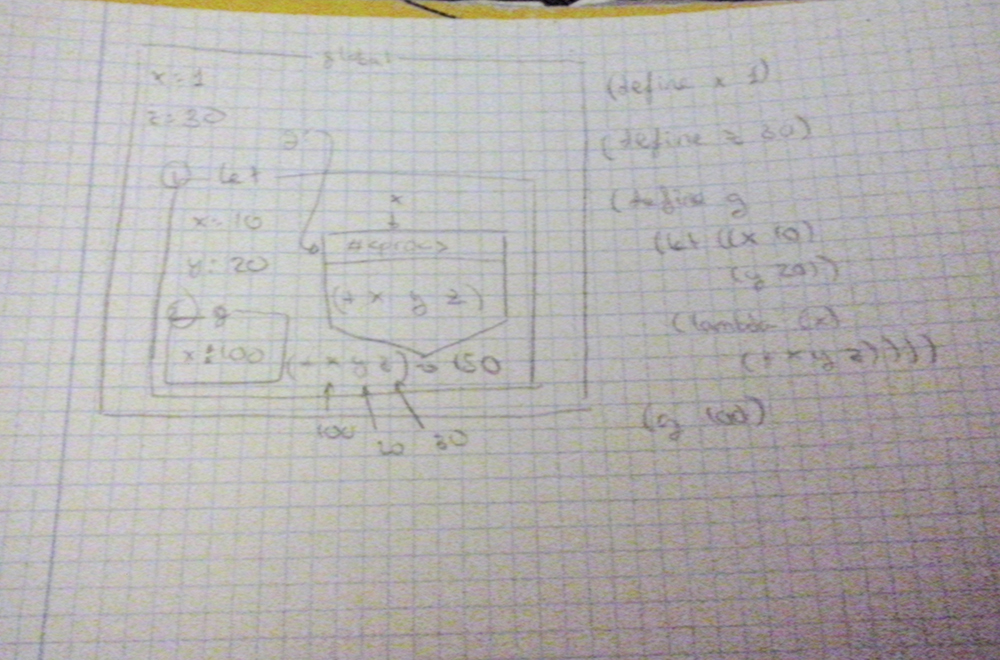 global
x = 1
z = 30
g
① let
x = 10
y = 20
x
#<proc>
(+ x y z)
② g
x = 100
(+ x y z) → 150
100
20
30
(define x 1)
(define z 30)
(define g
(let ((x 10)
(y 20))
(lambda (x)
(+ x y z))))
(g 100)